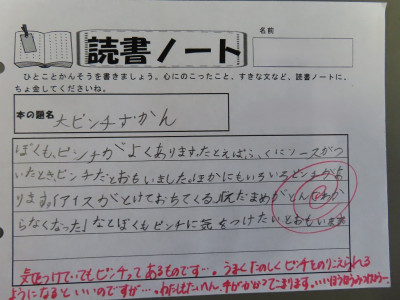 読書ノート
名前
ひとことかんそうを書きましょう。心にのこったこと、すきな文など、読書ノートに、
ちょ金してくださいね。
本の題名
大ピンチずかん
ぼくも、ピンチがよくあります。たとえばふくにソースがつ
いたときピンチだとおもいました。ほかにもいろいろピンチがあ
ります。「アイスがとけておちてくる」「だまめがどんか わか
らなくなった」などぼくもピンチに気をつけたいとおもいます
気をつけていてもピンチってあるものです…。うまくたのしくピンチをのりこえられる
ようになるといいのですが…。